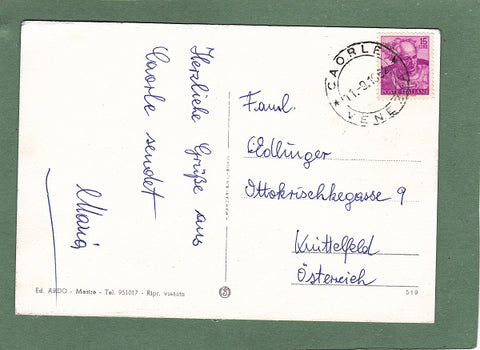 Herzliche Grüße aus
Caorle sendet
Maria
Faml.
Edlinger
Ottokrischkegasse 9
Knittelfeld
Österreich
CAORLE
VENEZIA
15
LIRE
Ed. ARDO - Mestre - Tel. 951017 - Ripr. vietata
519